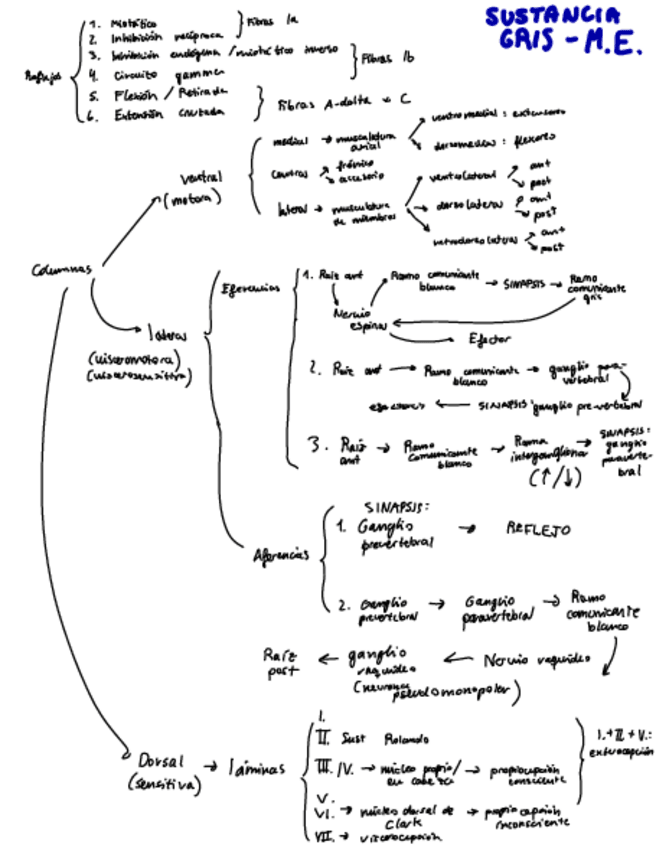 SUSTANCIA
GRIS - M.E.
Reflejos
1. Miotático
2. Inhibición recíproca
Fibras Ia
3. Inhibición endógena / miotático inverso
4. Circuito gamma
Fibras Ib
5. Flexión / Retirada
6. Extensión cruzada
Fibras A-delta y C
Columnas
ventral
(motora)
medial → musculatura
axial
ventromedial: extensores
dorsomedial: flexores
central
frénico
accesorio
lateral → musculatura
de miembros
ventrolateral
ant
post
dorsolateral
ant
post
retrodorsolateral
ant
post
lateral
(visceromotora)
(viscerosensitiva)
Eferencias
1. Raiz ant
Nervio
espinal
Ramo comunicante
blanco
→ SINAPSIS →
Ramo
comunicante
gris
Efector
2. Raiz ant → Ramo comunicante
blanco
→ ganglio para-
vertebral
SINAPSIS: ganglio prevertebral
3. Raiz
ant
→ Ramo
comunicante
blanco
→ Rama
interganglionar
(↑/↓)
→ SINAPSIS:
ganglio
paraverte-
bral
Aferencias
SINAPSIS:
1. Ganglio
prevertebral
→ REFLEJO
2. Ganglio
prevertebral
→ Ganglio
paravertebral
→ Ramo
comunicante
blanco
Nervio raquídeo
← ganglio
raquídeo
(neurona
pseudomonopolar)
← Raíz
post
Dorsal
(sensitiva)
→ láminas
I.
II. Sust Rolando
III./IV. → núcleo propio/
→ propiocepción
consciente
V.
VI. → núcleo dorsal de
Clark
→ propiocepción
inconsciente
VII. → viscerocepción
I.+II+V.:
exterocepción